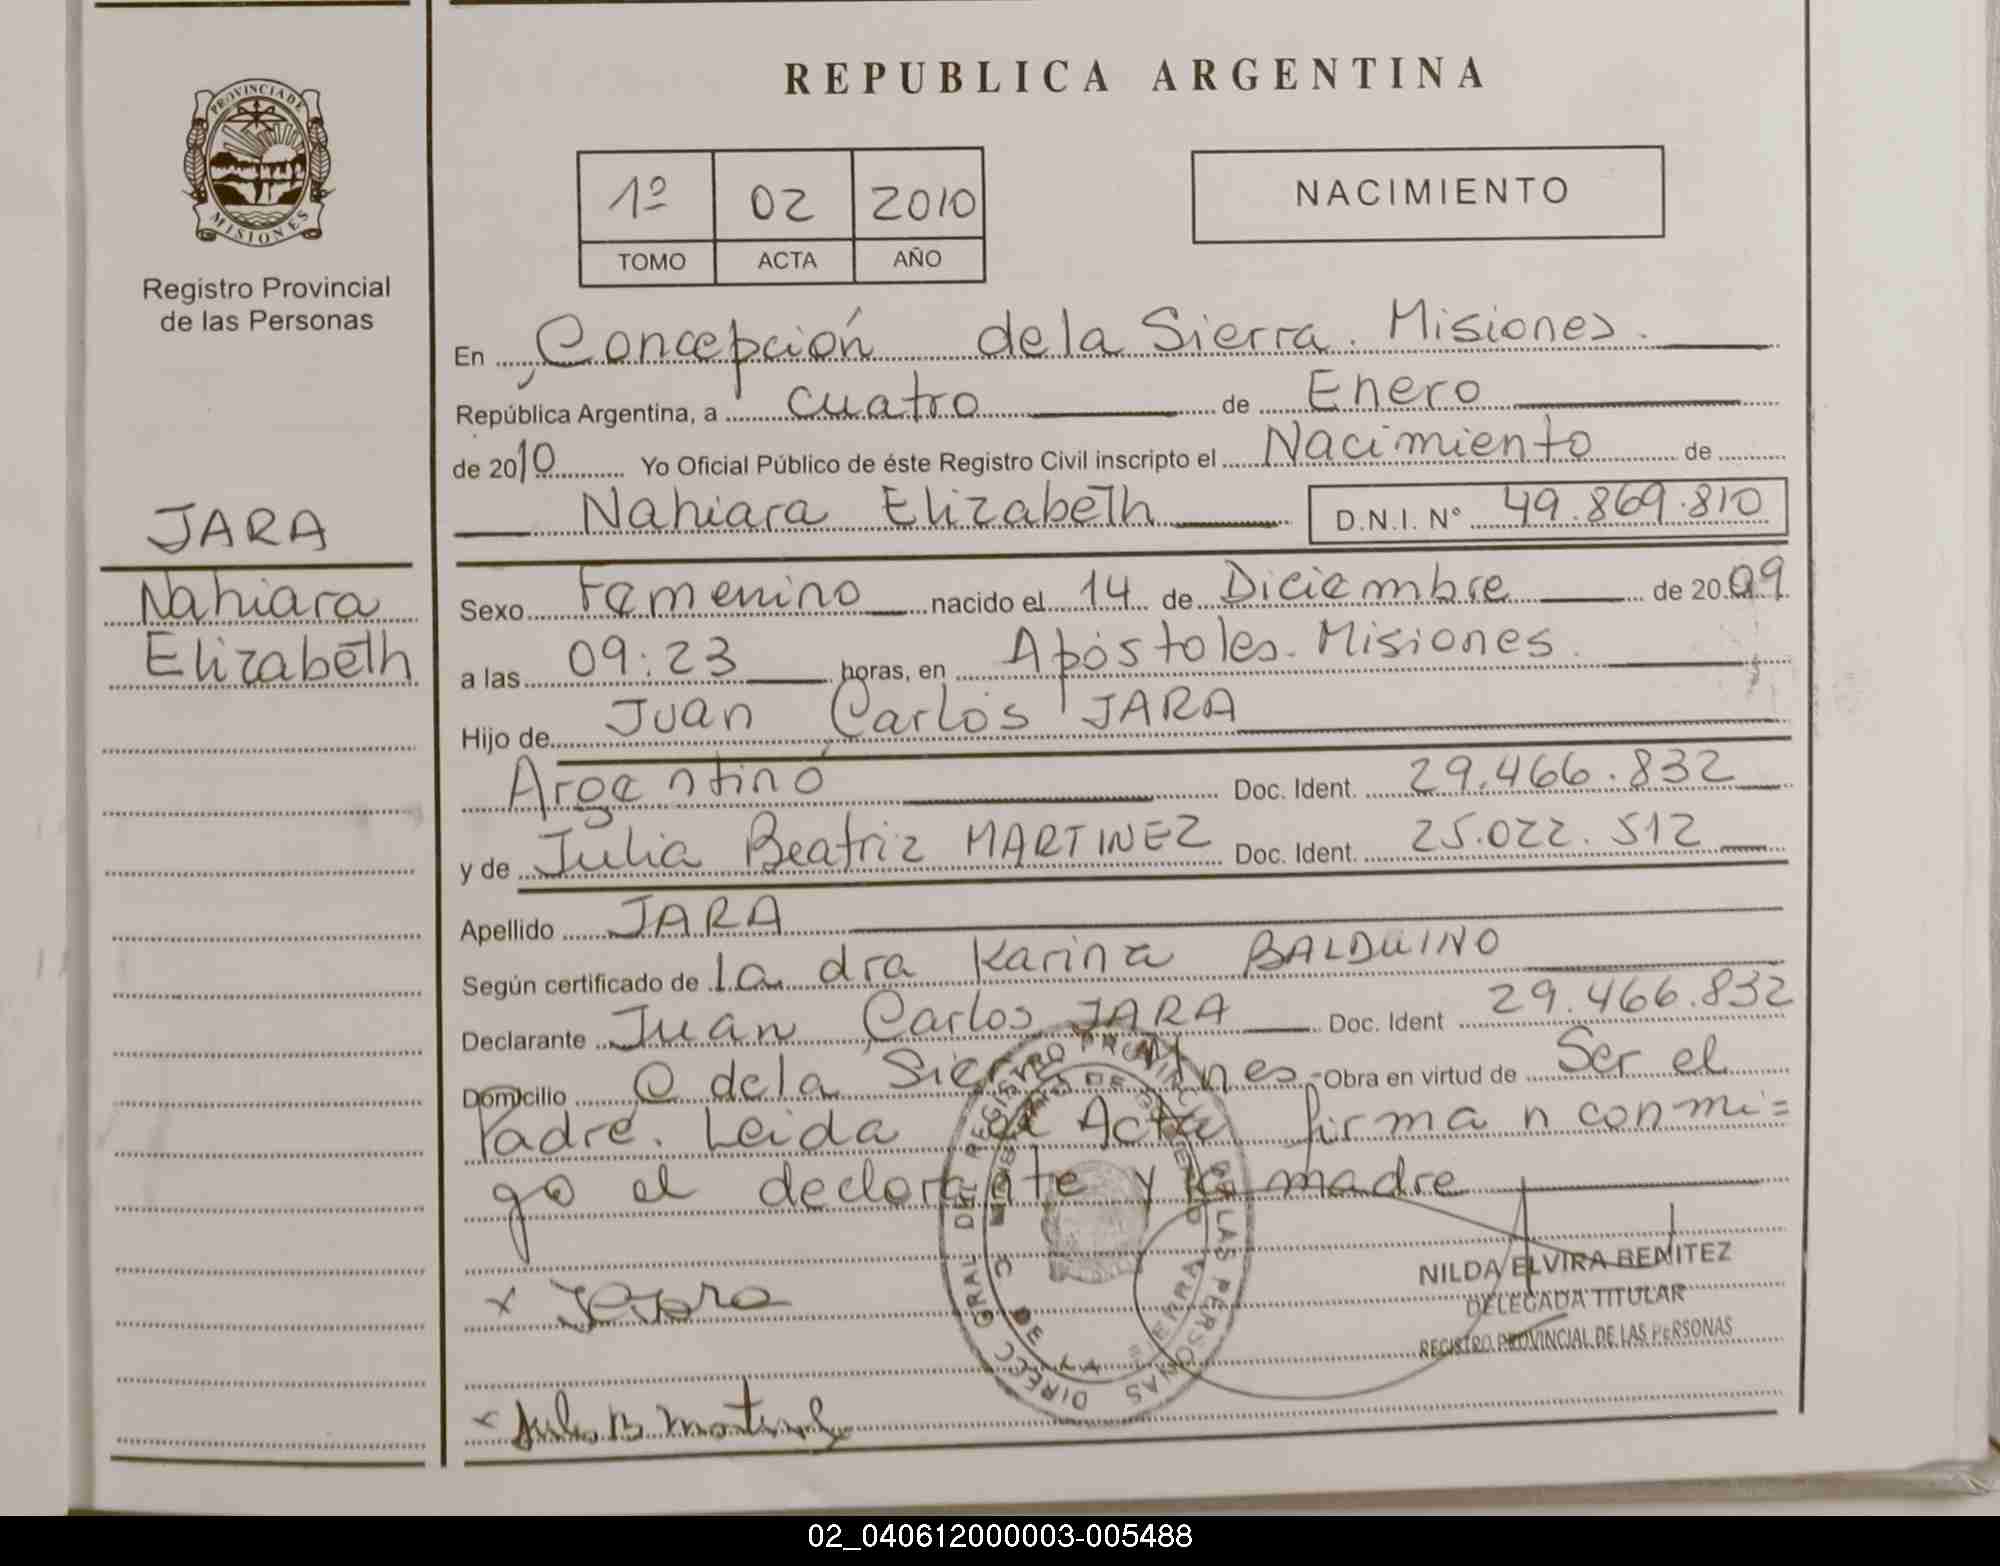 REPUBLICA ARGENTINA
PROVINCIA DE
MISIONES
Registro Provincial
de las Personas
1º 02 2010
TOMO ACTA AÑO
NACIMIENTO
En Concepción de la Sierra. Misiones.
República Argentina, a cuatro de Enero
de 2010 Yo Oficial Público de éste Registro Civil inscripto el Nacimiento de
Nahiara Elizabeth D.N.I. Nº 49.869.810
JARA
Nahiara
Elizabeth
Sexo Femenino nacido el 14 de Diciembre de 2009
a las 09:23 horas, en Apóstoles. Misiones.
Hijo de Juan Carlos JARA
Argentino Doc. Ident. 29.466.832
y de Julia Beatriz MARTINEZ Doc. Ident. 25.022.512
Apellido JARA
Según certificado de la dra Karina BALDUINO
Declarante Juan Carlos JARA Doc. Ident 29.466.832
Domicilio C de la Sierra Mnes. Obra en virtud de Ser el
Padre. Leida el Acta firman conmi=
go el declarante y la madre
DIRECC GRAL DEL REGISTRO PROVINCIAL DE LAS PERSONAS
NILDA ELVIRA BENITEZ
DELEGADA TITULAR
REGISTRO PROVINCIAL DE LAS PERSONAS
x
x Julia B Martinez
02_040612000003-005488